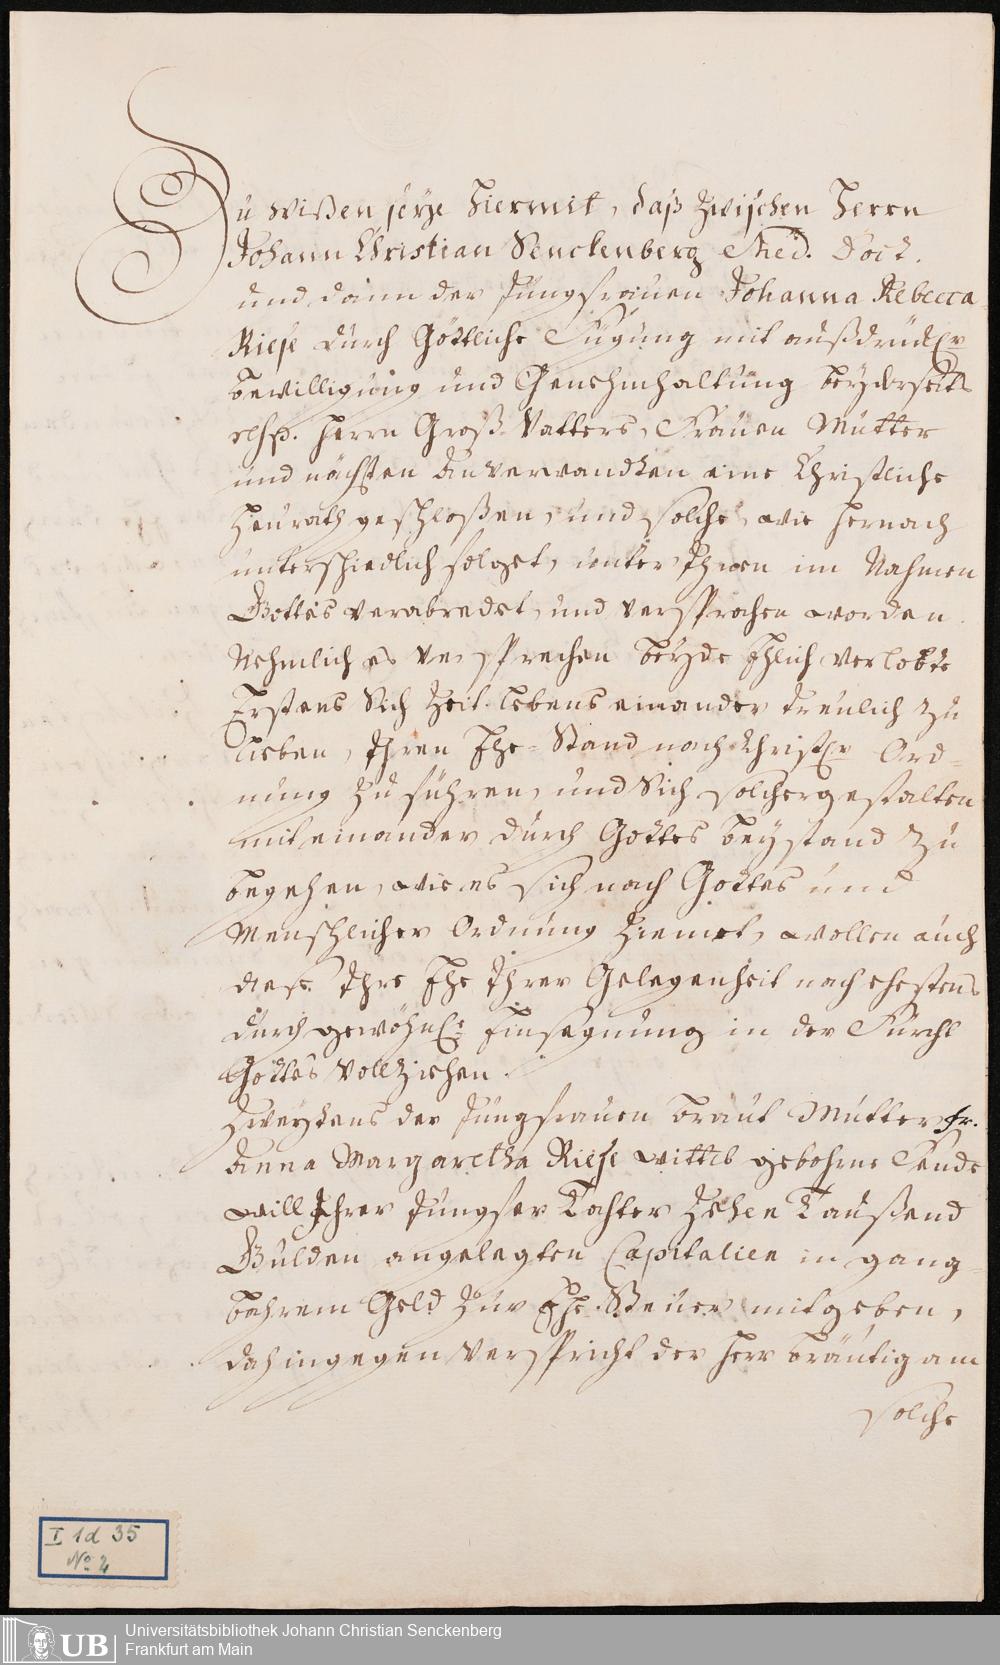 Zu wißen seye hiermit, daß zwischen Herrn
Johann Christian Senckenberg Med. Doct.
und dann der Jungfrauen Johanna Rebecca
Riese durch Göttliche Fügung mit außdrückl.r
bewilligung und Genehmhaltung beyderseits
resp. Herrn Groß-Vatters, Frauen Mutter
und nächsten Anverwandten eine Christliche
Heurath geschloßen, und solche, wie hernach
unterschiedlich folget, unter Ihnen im Nahmen
Gottes verabredet, und versprochen worden.
Nehmlich es versprechen beyde Ehlich verlobte
Erstens Sich Zeit-lebens einander treulich zu
lieben, Ihren Ehe-Stand nach Christl.r Ord-
nung zu führen, und Sich solchergestalten
miteinander durch Gottes beystand zu
begehen, wie es sich nach Gottes und
Menschlicher Ordnung ziemet, wollen auch
diese Ihre Ehe Ihrer Gelegenheit nach ehestens
durch gewöhnl.e Einsegnung in der Furcht
Gottes vollziehen.
Zweytens der Jungfrauen braut Mutter Fr.
Anna Margaretha Riese Wittib gebohrne Fende
will Ihrer Jungfer Tochter Zehen Taußend
Gulden angelegten Capitalien in gang-
bahrem Geld zur Ehe-Steuer mitgeben,
dahingegen verspricht der Herr bräutigam
solche
I 1d 35
No 2
UB
Universitätsbibliothek Johann Christian Senckenberg
Frankfurt am Main